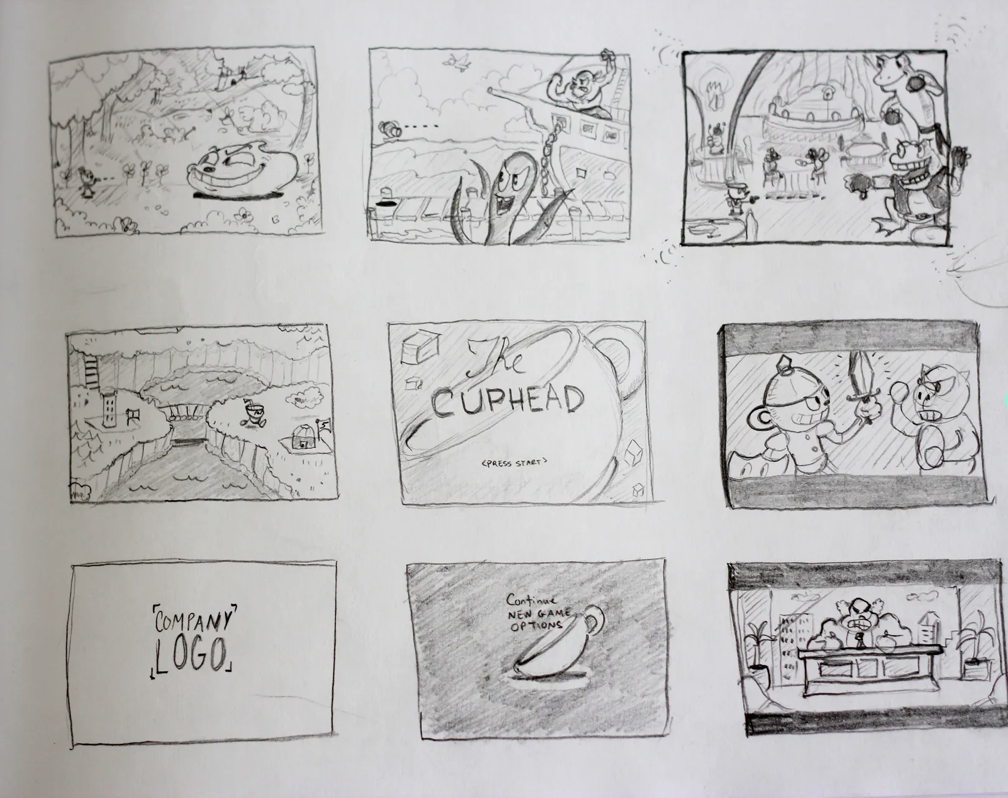 The
CUPHEAD
<PRESS START>
COMPANY
LOGO
Continue
NEW GAME
OPTIONS